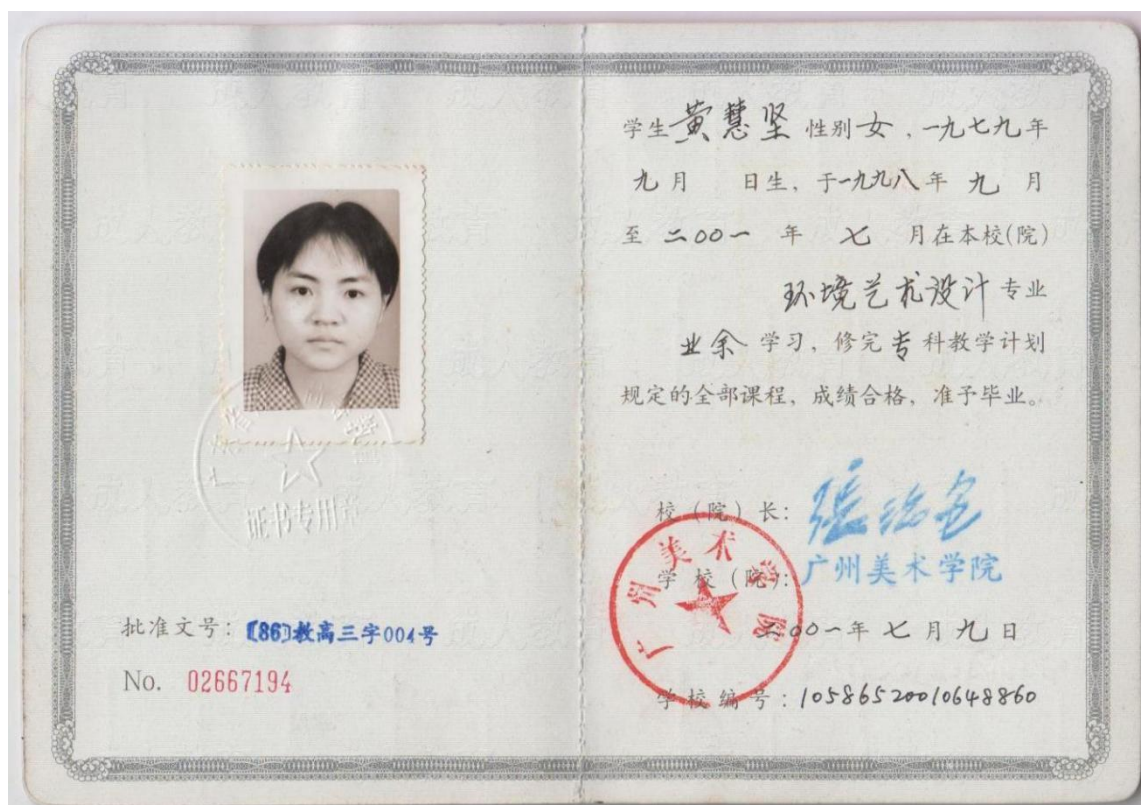 证书专用章
批准文号：〔86〕教高三字004号
No. 02667194
学生 黄慧坚 性别 女 ，一九七九年
九月 日生，于一九九八年 九 月
至 二00一 年 七 月在本校(院)
环境艺术设计 专业
业余 学习，修完 专 科教学计划
规定的全部课程，成绩合格，准予毕业。
校（院）长：
学校（院）：广州美术学院
广州美术学院
二00一年 七 月 九 日
学校编号：10586520010648860